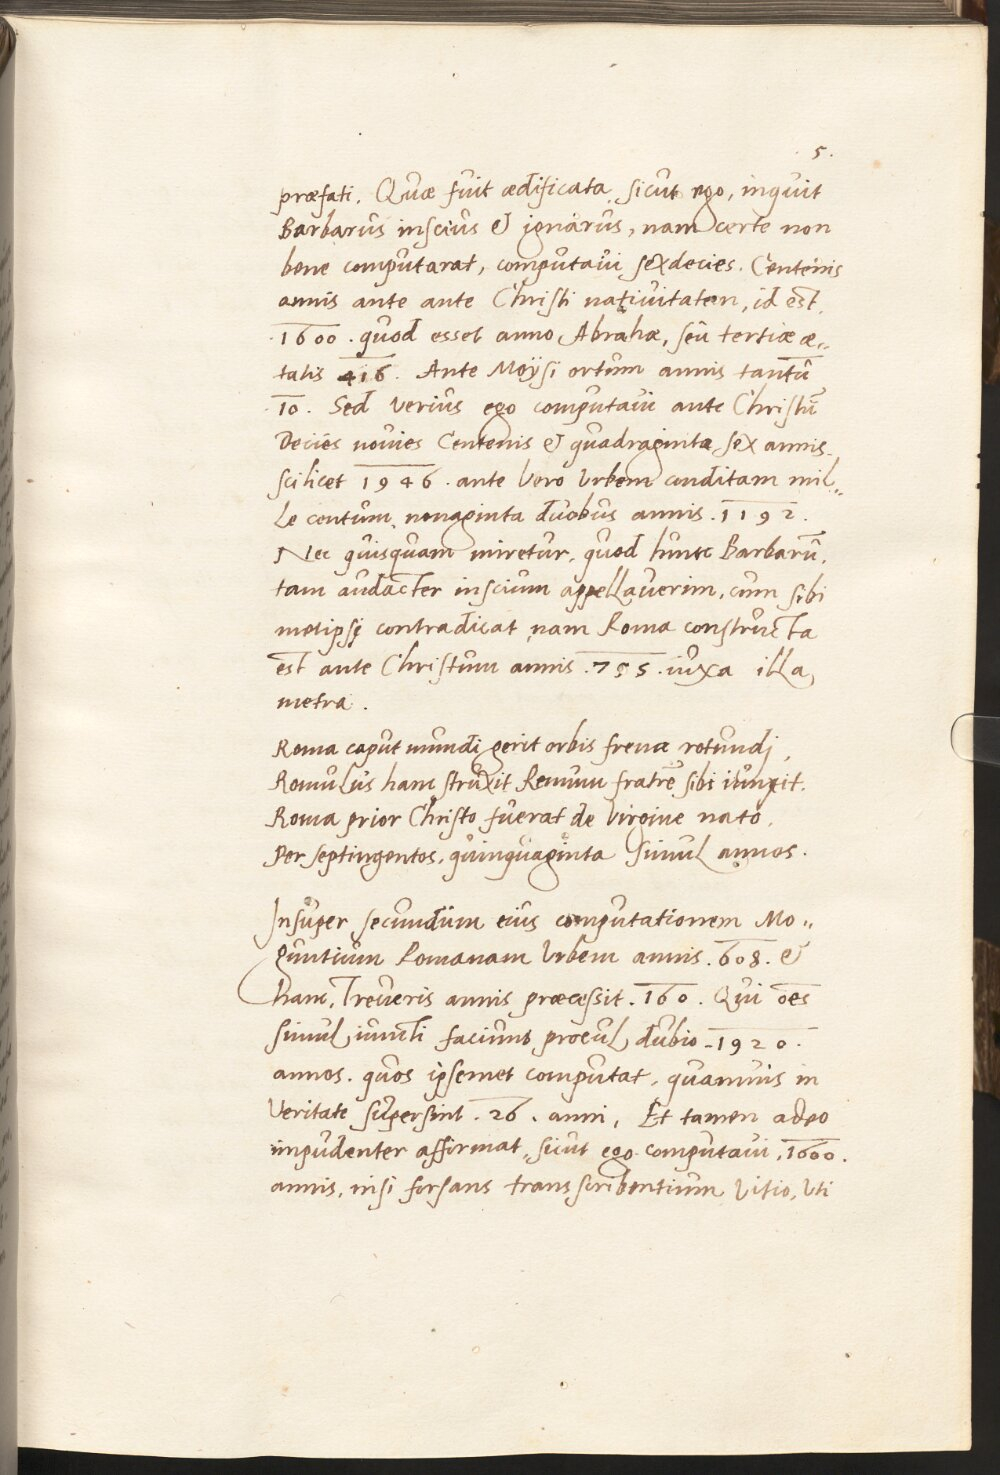 5.
præfati. Quæ fuit ædificata, sicut ego, inquit
Barbarus inscius & ignarus, nam certe non
bene computarat, computaui sexdecies. Centenis
annis ante ante Christi natiuitatem, id est.
.1600. quod esset anno Abrahæ, seu tertiæ æ„
tatis 416. Ante Moÿsi ortum annis tantū
.10. Sed verius ego computaui ante Christū
Decies nouies Centenis & quadraginta sex annis.
scilicet 1946. ante vero vrbem conditam mil„
le centum nonaginta duobus annis .1192.
Nec quisquam miretur, quod hunc Barbarū,
tam audacter inscium appellauerim, cum sibi
metipsi contradicat nam Roma constructa
est ante Christum annis .755. iuxa illa
metra.
Roma caput mundi gerit orbis frena rotundi,
Romulus hanc struxit Remum fratrē sibi iunxit.
Roma prior Christo fuerat de virgine nato,
Per septingentos, quinquaginta simul annos.
Insuper secundum eius computationem Mo„
guntium Romanam Vrbem annis .608. &
hanc, Treueris annis præcessit .160. Qui oēs
simul iuncti faciunt procul dubio .1920.
annos. quos ipsemet computat, quamuis in
Veritate supersint .26. anni, Et tamen adeo
impudenter affirmat, sicut ego computaui, 1600.
annis, nisi forsans transscribentium vitio, vti